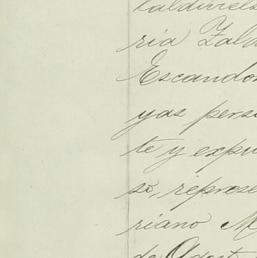 ria Zald
Escandon
yas perso
te y expu
so, represe
riano M
de Agost